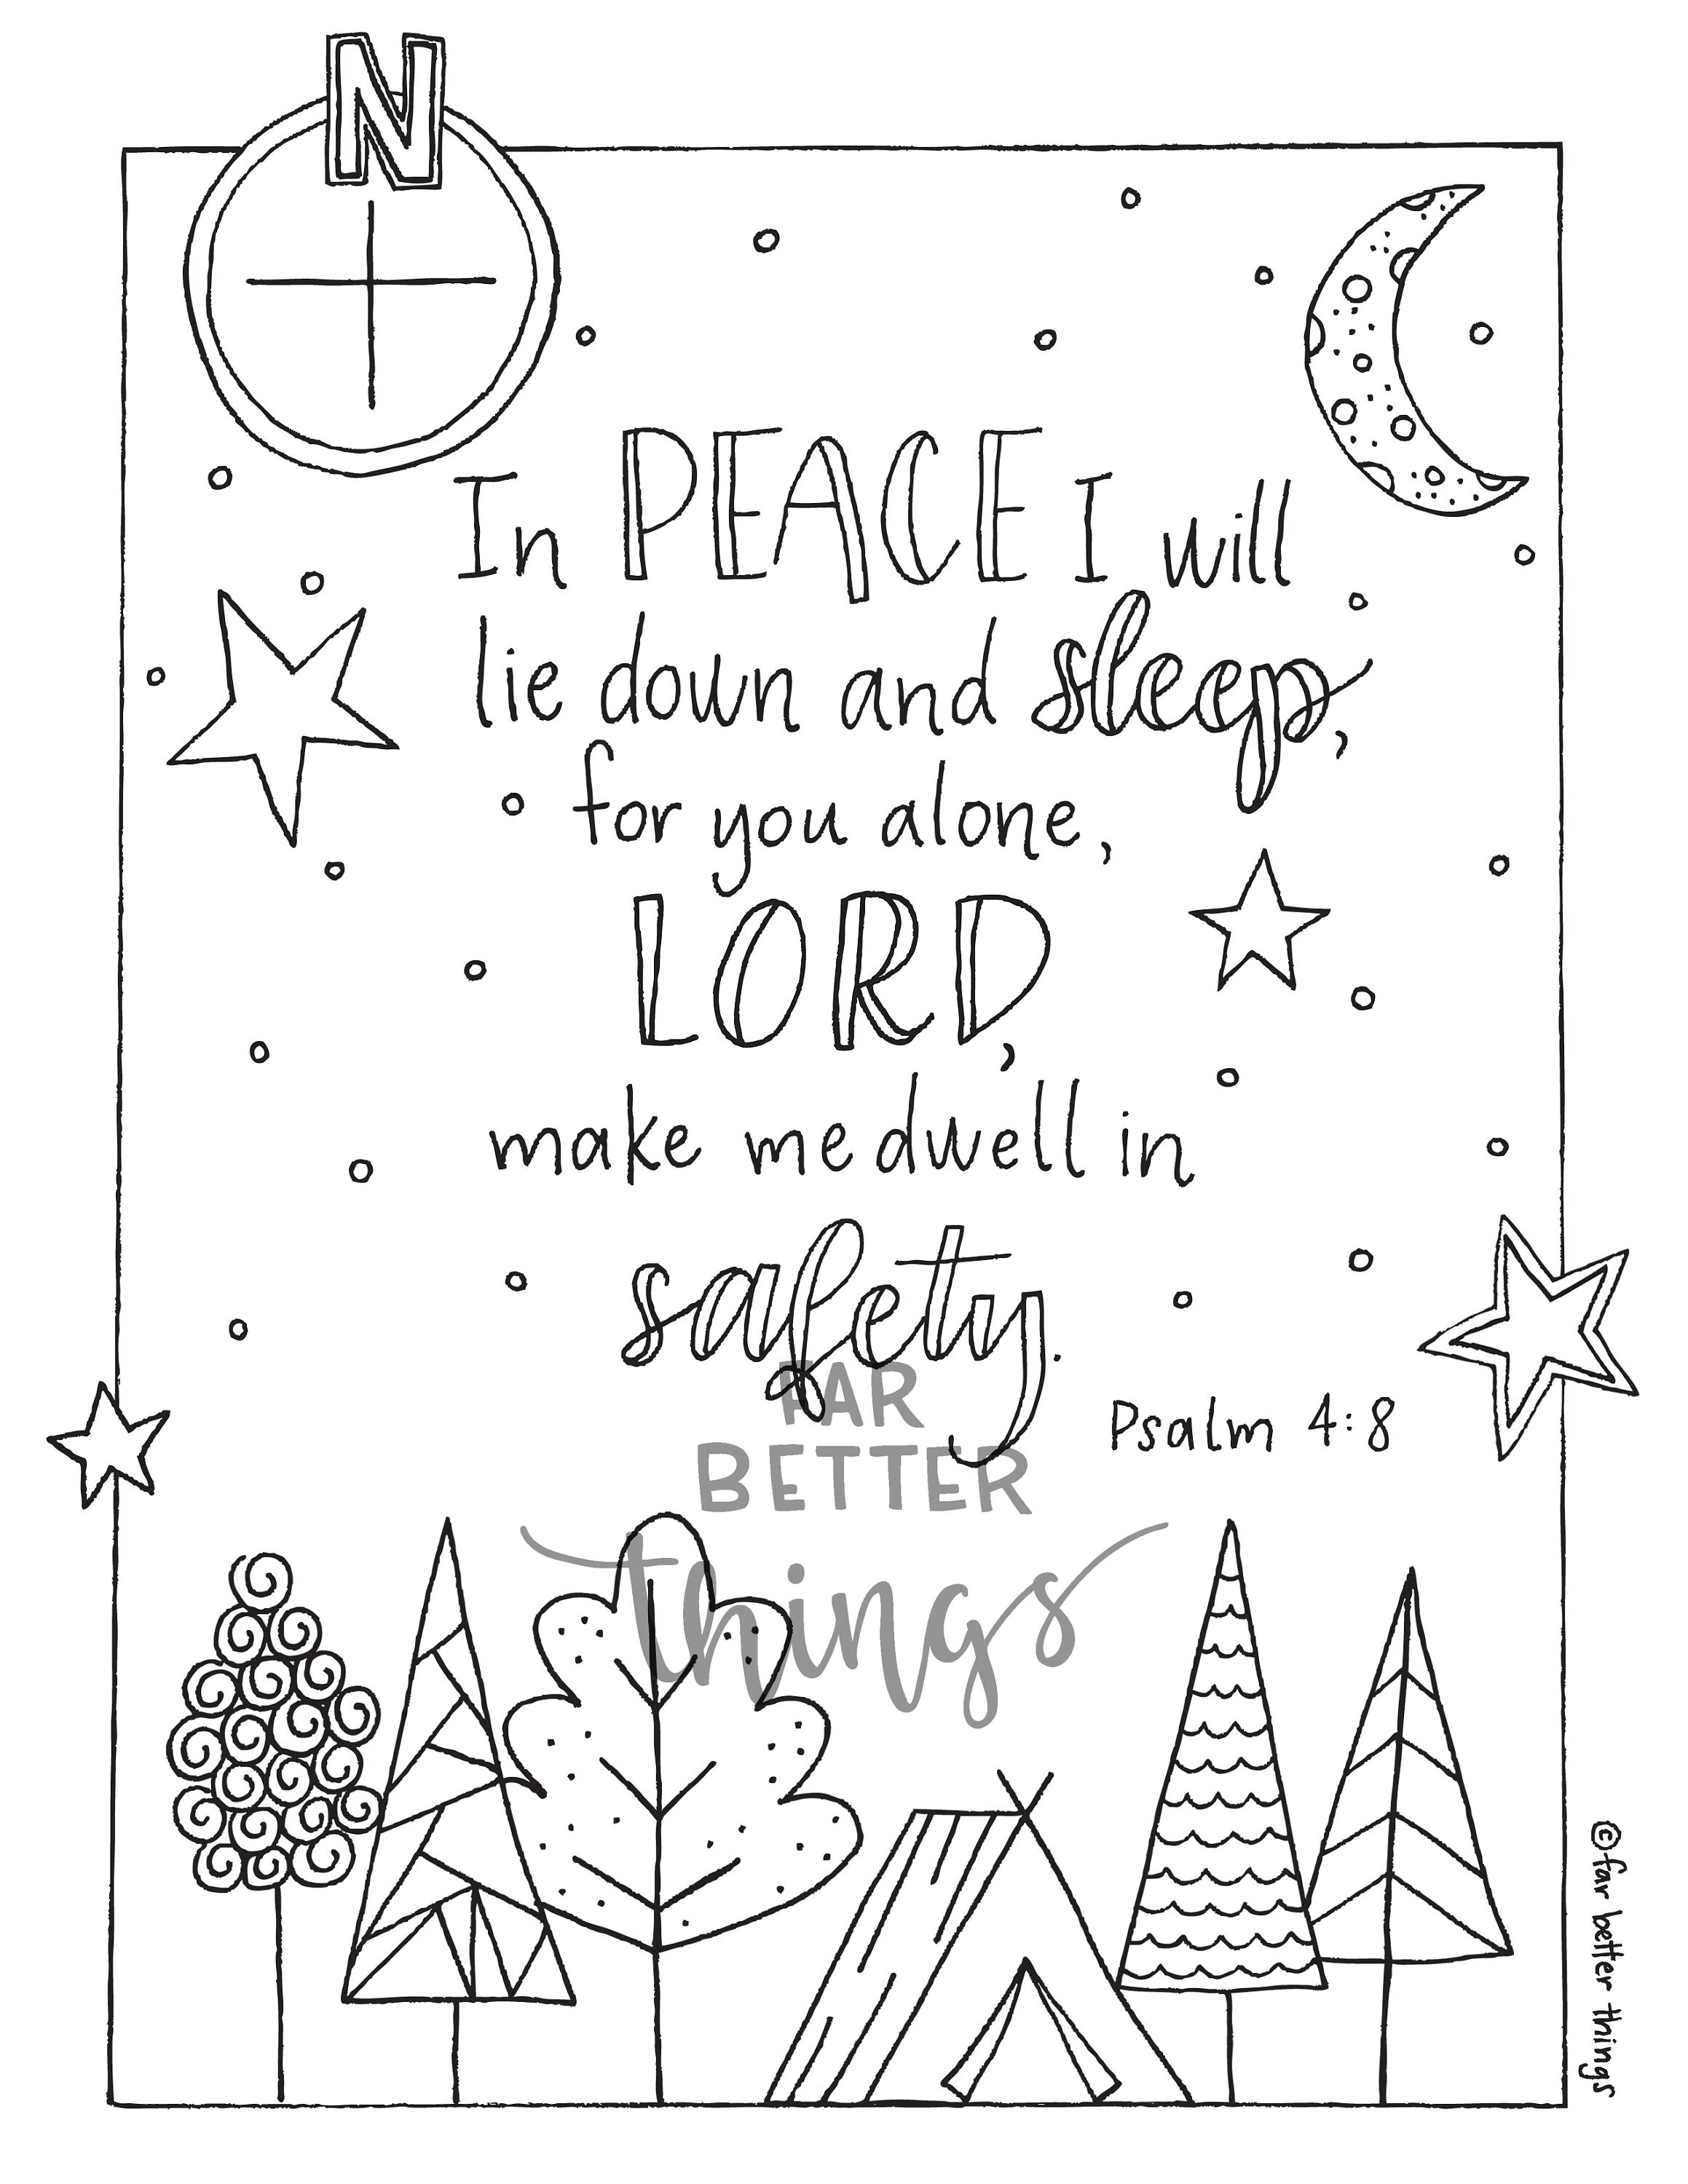 N
In PEACE I will
lie down and sleep,
for you alone,
LORD,
make me dwell in
safety.
Psalm 4:8
FAR
BETTER
things
©far better things